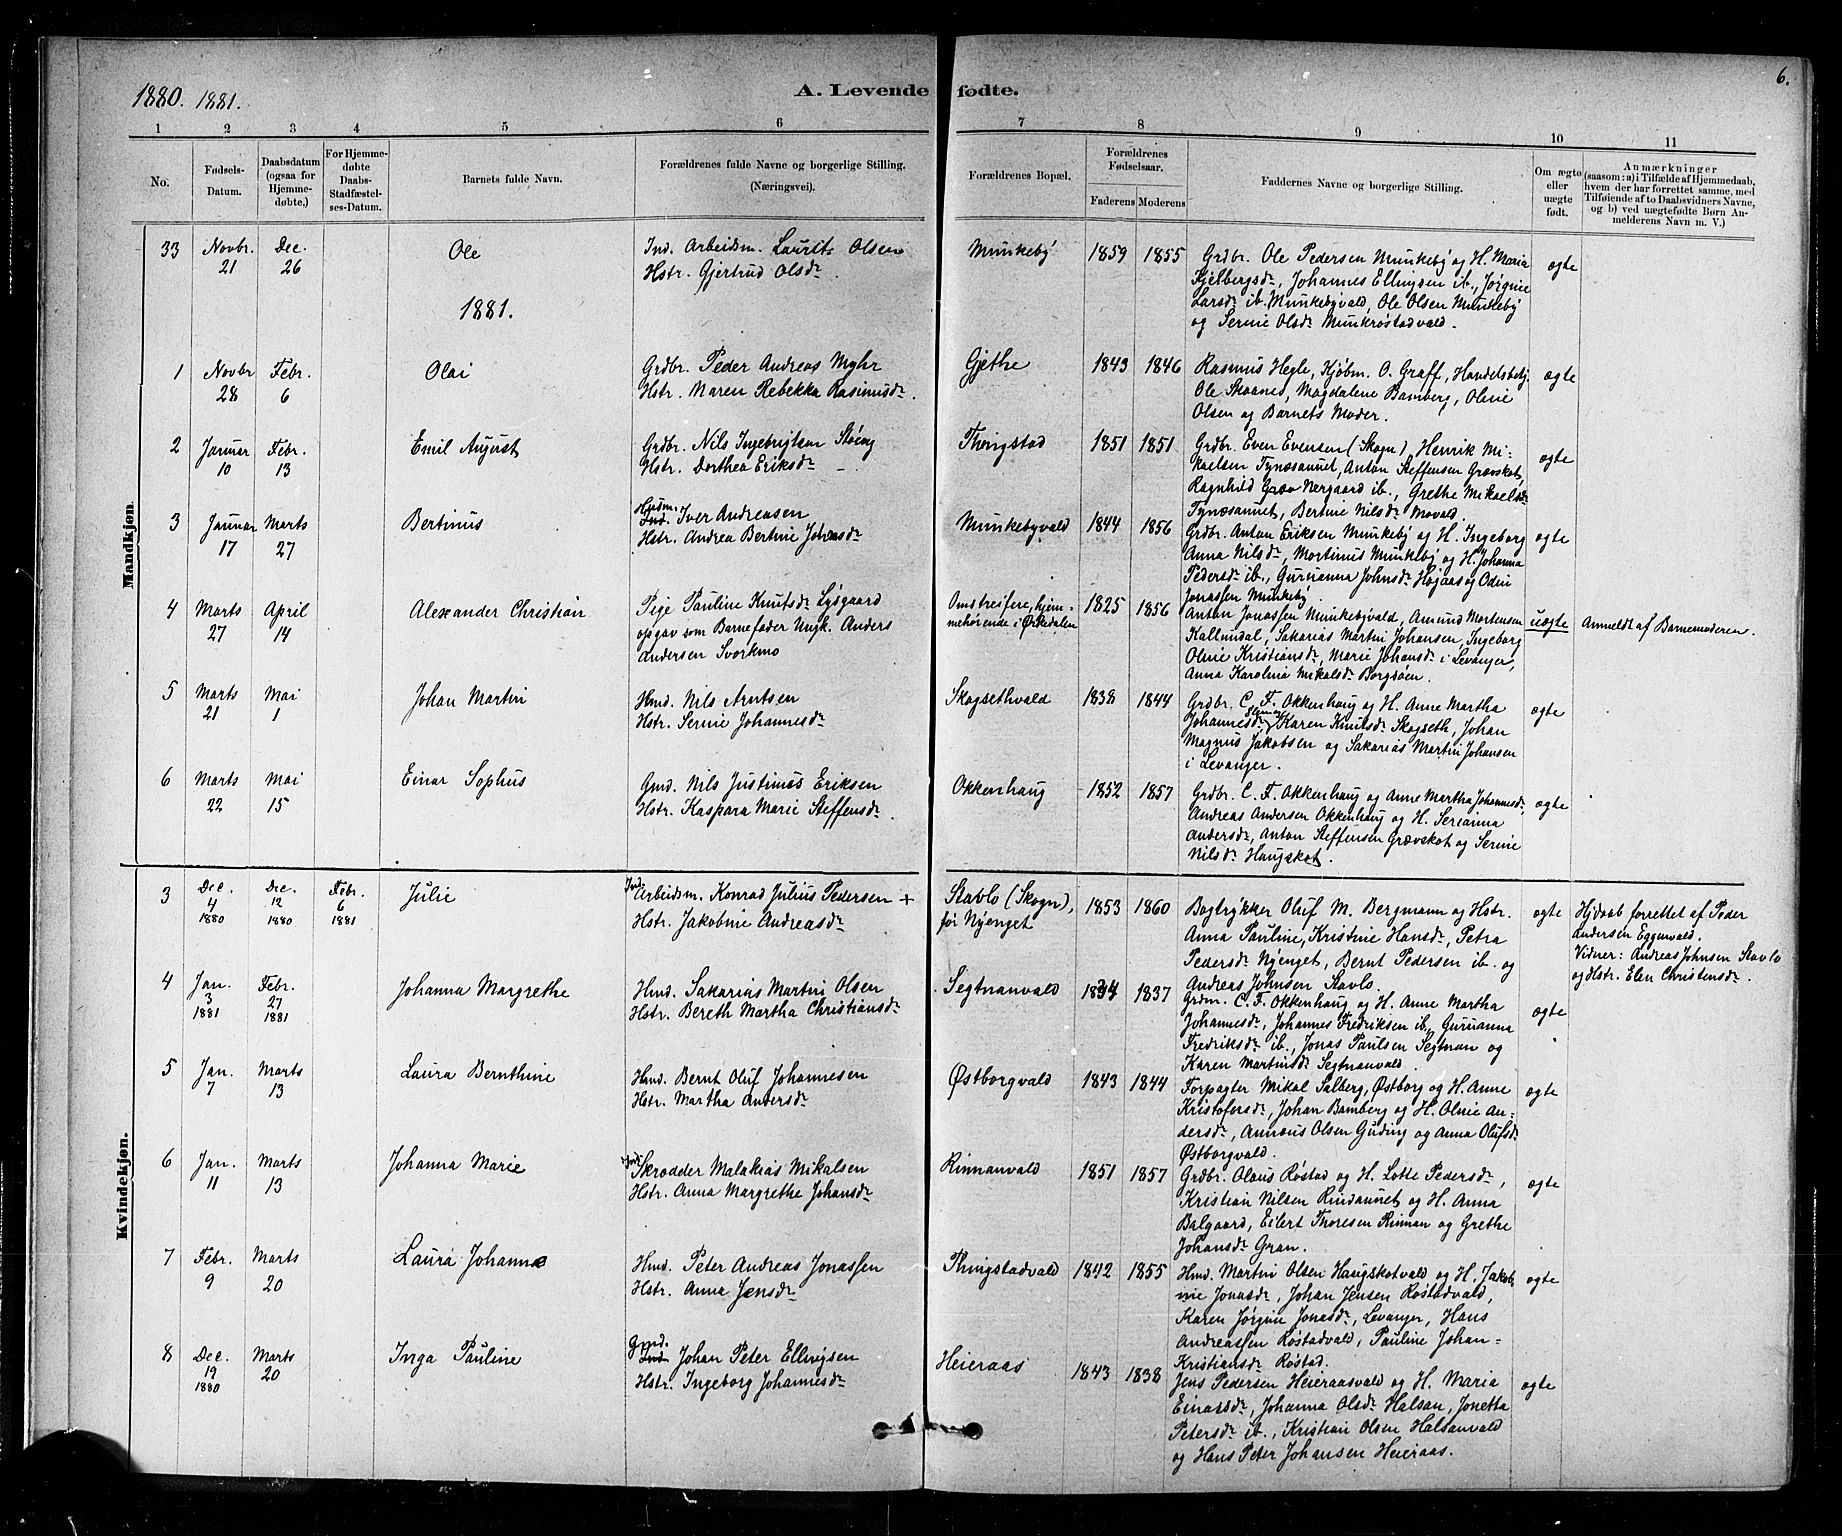 1880. 1881.
A. Levende fødte.
6.
1 2 3 4 5 6 7 8 9 10 11
No.
Fødsels-
Datum.
Daabsdatum
(ogsaa for
Hjemme-
døbte.)
For Hjemme-
døbte
Daabs-
Stadfæstel-
ses-Datum.
Barnets fulde Navn.
Forældrenes fulde Navne og borgerlige Stilling.
(Næringsvei).
Forældrenes Bopæl.
Forældrenes
Fødselsaar.
Faderens Moderens
Faddernes Navne og borgerlige Stilling.
Om ægte
eller
uægte
født.
Anmærkninger
(saasom: a) i Tilfælde af Hjemmedaab,
hvem der har forrettet samme, med
Tilføiende af to Daabsvidners Navne,
og b) ved uægtefødte Børn An-
melderens Navn m. V.)
Mandkjøn.
33
Novbr.
21
Dec.
26
Ole
Ind. Arbeidsm. Lauritz Olsen
Hstr. Gjertrud Olsdr
Munkeby
1859
1855
Grdbr. Ole Pedersen Munkeby og H. Maria
Kjelbergsdr, Johannes Ellingsen ib., Jørgine
Larsdr ib. Munkebyvald, Ole Olsen Munkeby
og Serine Olsdr Munkrøstadvald.
ægte
1881.
1
Novbr
28
Febr.
6
Olai
Grdbr. Peder Andreas Myhr
Hstr. Maren Rebekka Rasmusdr.
Gjethe
1843
1846
Rasmus Hegle, Kjøbm. O. Graff, Handelsbetj.
Ole Skaaned, Magdalene Bamberg, Oline
Olsen og Barnets Moder.
ægte
2
Januar
10
Febr.
13
Emil August
Grdbr. Nils Ingebrigtsen Støeng
Hstr. Dorthea Eriksdr
Thingstad
1851
1851
Grdbr. Even Evensen (i Skogn), Henrik Mi-
kaelsen Tynæsaunet, Anton Steffensen Grævskot,
Ragnhild Græv Nergaard ib., Grethe Mikaelsdr
Tynæsaunet, Bertine Nilsdr Movald.
ægte
3
Januar
17
Marts
27
Bertinus
Husm.
Ind. Iver Andreasen
Hstr. Andrea Bertine Johnsdr
Munkebyvald
1844
1856
Grdbr. Anton Eriksen Munkeby og H. Ingeborg
Anna Nilsdr, Martinus Munkeby og H. Johanna
Pedersdr ib., Gurianna Johnsdr Højaas og Odin
Jonassen Munkeby.
ægte
4
Marts
27
April
14
Alexander Christian
Pige Pauline Knutsdr Lysgaard
opgav som Barnefader Ungk. Anders
Andersen Svorkmo
Omstreifere, hjem-
mehørende i Ørkedalen
1825
1856
Anton Jonassen Munkebyvald, Amund Mortensen
Kallundal, Sakarias Martin Johansen, Ingeborg
Oline Kristiansdr, Marie Johansdr i Levanger,
Anna Karolina Mikalsdr Borgsøen.
uægte
Anmeldt af Barnemoderen.
5
Marts
21
Mai
1
Johan Martin
Hmd. Nils Arntsen
Hstr. Serine Johannesdr
Skogsethvald
1838
1844
Grdbr. C. F. Okkenhaug og H. Anne Martha
Johannesdr, Karen Knutsdr Skogseth, Johan
Magnus Jakobsen og Sakarias Martin Johansen
i Levanger.
ægte
6
Marts
22
Mai
15
Einar Sophus
Gmd. Nils Justinus Eriksen
Hstr. Kaspara Marie Steffensdr.
Okkenhaug
1852
1857
Grdbr. C. F. Okkenhaug og Anne Martha Johannesdr,
Andreas Andersen Okkenhaug og H. Serianna
Andersdr, Anton Steffensen Grævskot og Serine
Nilsdr Haugskot.
ægte
Kvindekjøn.
3
Dec.
4
1880
Dec.
12
1880
Febr.
6
1881
Julie
Ind.
Arbeidsm. Konrad Julius Pedersen +
Hstr. Jakobine Andreasdr
Stavlo (Skogn),
før Nyenget
1853
1860
Bogtrykker Oluf M. Bergmann og Hstr.
Anna Pauline, Kristine Hansdr, Petra
Pedersdr Nyenget, Bernt Pedersen ib. og
Andreas Johnsen Stavlo.
ægte
Hjdaab forrettet af Peder
Andersen Eggenvald.
Vidner: Andreas Johnsen Stavlo
og Hstr. Elen Christensdr.
4
Jan.
3
1881
Febr.
27
1881
Johanna Margrethe
Hmd. Sakarias Martin Olsen
Hstr. Bereth Martha Christiansdr
Segtnanvald
1834
1837
Grdm. C. F. Okkenhaug og H. Anne Martha
Johannesdr, Johannes Fredriksen ib., Gurianna
Fredriksdr ib., Jonas Paulsen Segtnan og
Karen Martinsdr Segtnanvald.
ægte
5
Jan.
7
Marts
13
Laura Bernthine
Hmd. Bernt Oluf Johannesen
Hstr. Martha Andersdr
Østborgvald
1843
1844
Forpagter Mikal Salberg, Østborg og H. Anne
Kristofersdr, Johan Bamberg og H. Oline An-
dersdr, Annæus Olsen Guding og Anna Olufsdr
Østborgvald.
ægte
6
Jan.
11
Marts
13
Johanna Marie
Ind.
Skrædder Malakias Mikalsen
Hstr. Anna Margrethe Johansdr
Rinnanvald
1851
1857
Grdbr. Olaus Røstad og H. Lotte Pedersdr,
Kristian Nilsen Rindaunet og H. Anna
Balgaard, Eilert Thoresen Rinnan og Grethe
Johansdr Gran.
ægte
7
Febr.
9
Marts
20
Laura Johanna
Hmd. Peter Andreas Jonassen
Hstr. Anna Jensdr
Thingstadvald
1842
1855
Hmd. Martin Olsen Haugskotvald og H. Jakob-
ine Jonasdr, Johan Jensen Røstadvald,
Karen Jørgine Jonasdr, Levanger, Hans
Andreassen Røstadvald, Pauline Johan-
Kristiansdr Røstad.
ægte
8
Dec.
19
1880
Marts
20
Inga Pauline
Gmd.
Ind. Johan Peter Ellingsen
Hstr. Ingeborg Johannesdr
Heieraas
1843
1838
Jens Pedersen Heieraasvald og H. Maria
Einarsdr, Johanna Olsdr Halsan, Jonetta
Petersdr ib., Kristian Olsen Halsanvald
og Hans Peter Johansen Heieraas.
ægte